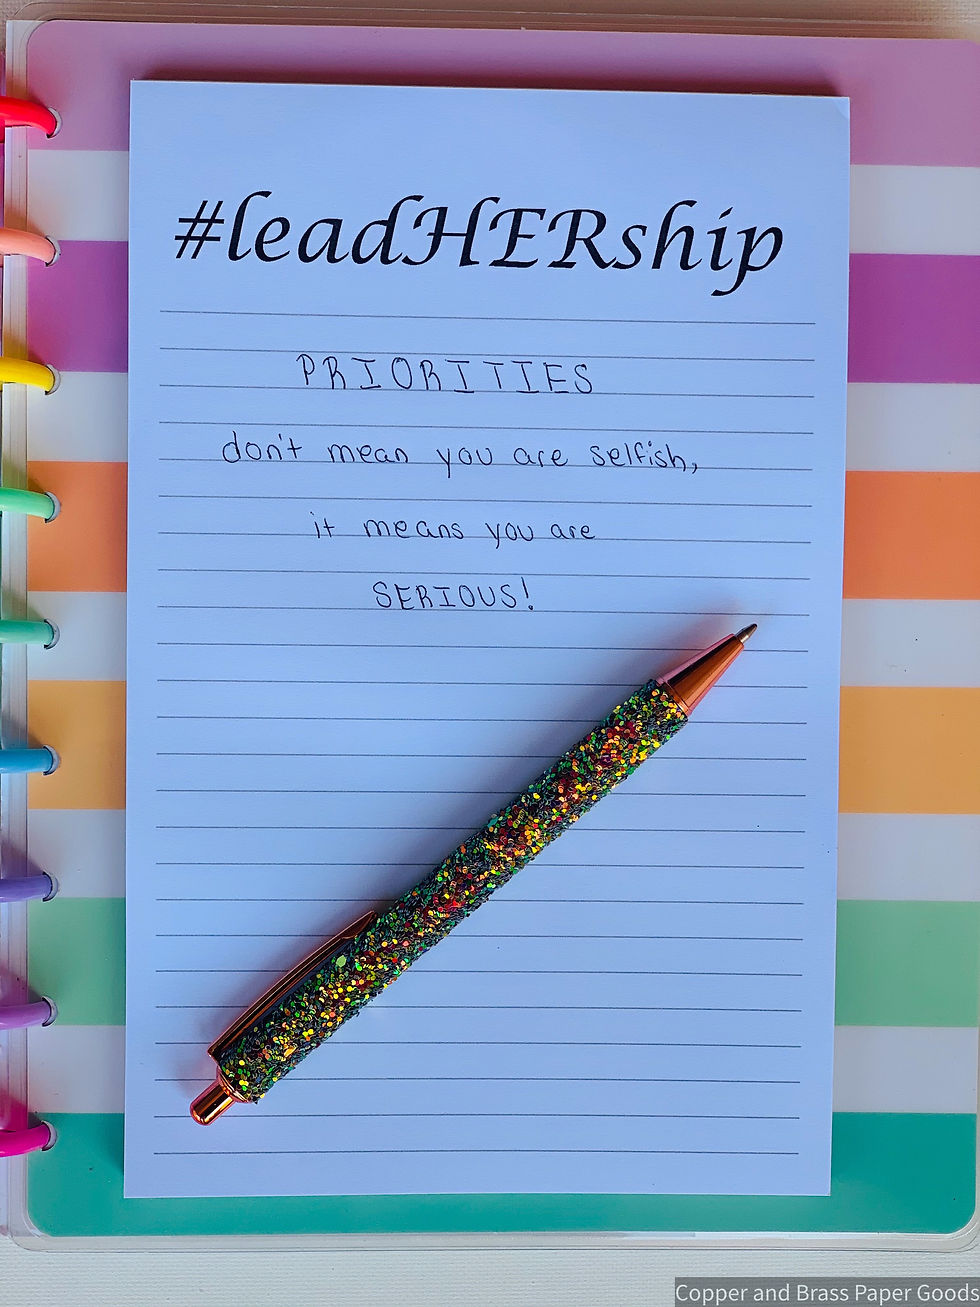 #leadHERship
PRIORITIES
don't mean you are selfish,
it means you are
SERIOUS!
Copper and Brass Paper Goods